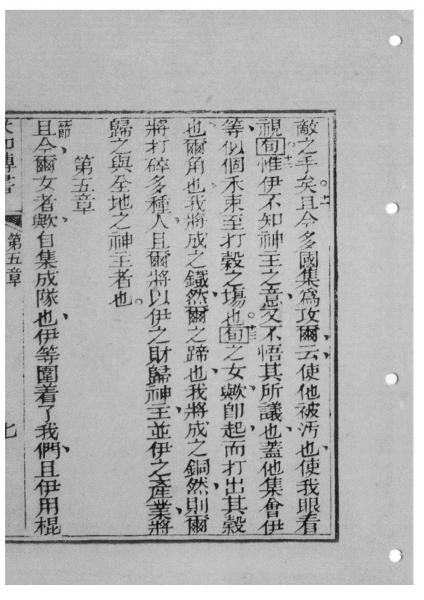 敵之手矣。十一且今多國集爲攻爾云使他被汚也使我眼看
視旬。十二惟伊不知神主之意、又不悟其所議也蓋他集會伊
等似個禾束至打穀之場也。十三旬之女歟即起而打出其穀
也爾角也我將成之鐵然爾之蹄也我將成之銅然則爾
將打碎多種人且爾將以伊之財歸神主並伊之產業將
歸之與全地之神主者也。
第五章
一節、且今爾女者歟自集成隊也伊等圍着了我們、且伊用棍
第五章
七